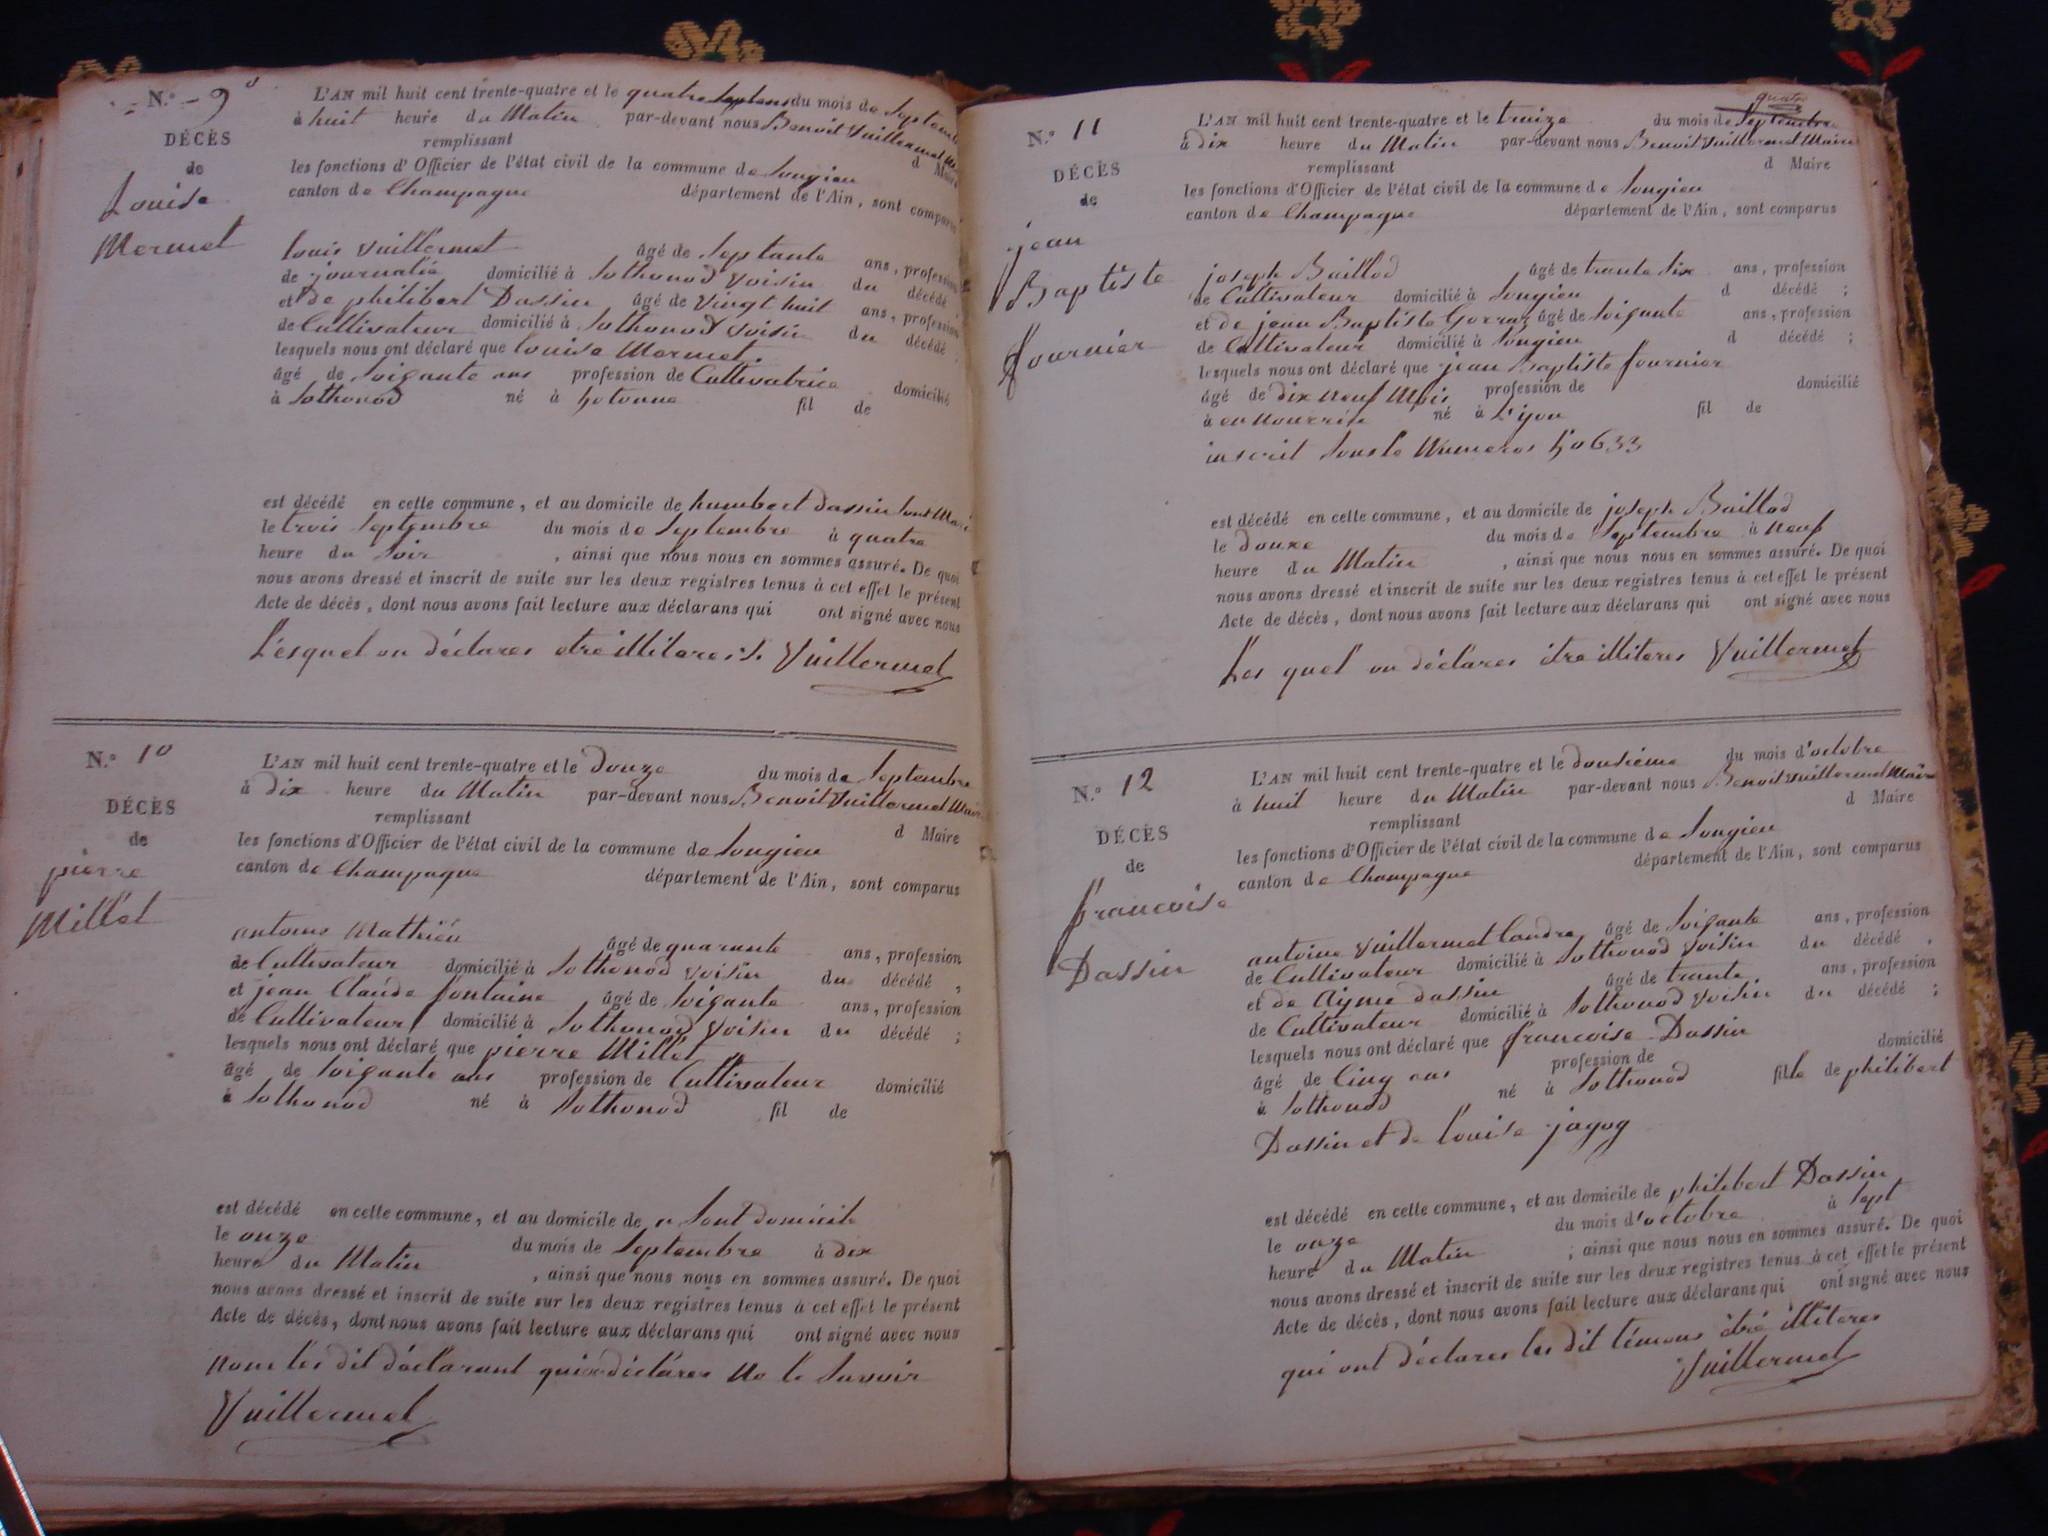 N.º 9
DÉCÈS
de
Louise
Mermet
L'AN mil huit cent trente-quatre et le quatre du mois de Septembre
à huit heure du Matin par-devant nous Benoit Vuillermet
remplissant d Maire
les fonctions d'Officier de l'état civil de la commune de Songieu
canton de Champagne département de l'Ain, sont comparus
louis Vuillermet âgé de Septante ans, profession
de journalié domicilié à Sothonod Voisin du décédé,
et de philibert Dassin âgé de Vingt huit ans, profession
de Cultivateur domicilié à Sothonod Voisin du décédé ;
lesquels nous ont déclaré que louise Mermet
âgé de Soigante ans profession de Cultivatrice domicilié
à Sothonod né à hotonne fil de
est décédé en cette commune, et au domicile de humbert Dassin Sont Mari
le trois Septembre du mois de Septembre à quatre
heure du Soir , ainsi que nous nous en sommes assuré. De quoi
nous avons dressé et inscrit de suite sur les deux registres tenus à cet effet le présent
Acte de décès, dont nous avons fait lecture aux déclarans qui ont signé avec nous
Lesquel on déclares etre illiteres Vuillermet
N.º 10
DÉCÈS
de
pierre
Millet
L'AN mil huit cent trente-quatre et le douze du mois de Septembre
à dix heure du Matin par-devant nous Benoit Vuillermet Maire
remplissant d Maire
les fonctions d'Officier de l'état civil de la commune de Songieu
canton de Champagne département de l'Ain, sont comparus
antoine Mathieu âgé de quarante ans, profession
de Cultivateur domicilié à Sothonod Voisin du décédé,
et jean Claude fontaine âgé de Soigante ans, profession
de Cultivateur domicilié à Sothonod Voisin du décédé ;
lesquels nous ont déclaré que pierre Millet
âgé de Soigante ans profession de Cultivateur domicilié
à Sothonod né à Sothonod fil de
est décédé en cette commune, et au domicile de a Sont domicile
le onze du mois de Septembre à dix
heure du Matin , ainsi que nous nous en sommes assuré. De quoi
nous avons dressé et inscrit de suite sur les deux registres tenus à cet effet le présent
Acte de décès, dont nous avons fait lecture aux déclarans qui ont signé avec nous
Nom les dit déclarant qui on déclares Ne le Savoir
Vuillermet
N.º 11
DÉCÈS
de
jean
Baptiste
fournier
quatre
L'AN mil huit cent trente-quatre et le treize du mois de Septembre
à dix heure du Matin par-devant nous Benoit Vuillermet Maire
remplissant d Maire
les fonctions d'Officier de l'état civil de la commune de Songieu
canton de Champagne département de l'Ain, sont comparus
joseph Baillod âgé de trante Six ans, profession
de Cultivateur domicilié à Songieu d décédé ;
et de jean Baptiste Gorraz âgé de Soigante ans, profession
de Cultivateur domicilié à Songieu d décédé ;
lesquels nous ont déclaré que jean Baptiste fournier
âgé de dix Neuf Mois profession de domicilié
à en Nourrise né à Lyon fil de
inscrit Sous le Numeros 50633
est décédé en cette commune, et au domicile de joseph Baillod
le douze du mois de Septembre à Neuf
heure du Matin , ainsi que nous nous en sommes assuré. De quoi
nous avons dressé et inscrit de suite sur les deux registres tenus à cet effet le présent
Acte de décès, dont nous avons fait lecture aux déclarans qui ont signé avec nous
Les quel on déclares être illiteres Vuillermet
N.º 12
DÉCÈS
de
francoise
Dassin
L'AN mil huit cent trente-quatre et le dousieme du mois d'octobre
à huit heure du Matin par-devant nous Benoit Vuillermet Maire
remplissant d Maire
les fonctions d'Officier de l'état civil de la commune de Songieu
canton de Champagne département de l'Ain, sont comparus
antoine Vuillermet âgé de Soigante ans, profession
de Cultivateur domicilié à Sothonod Voisin du décédé,
et de Ayme dassin âgé de trante ans, profession
de Cultivateur domicilié à Sothonod Voisin du décédé ;
lesquels nous ont déclaré que francoise Dassin
âgé de Cinq ans profession de domicilié
à Sothonod né à Sothonod fille de philibert
Dassin et de louise jagog
est décédé en cette commune, et au domicile de philibert Dassin
le onze du mois d'octobre à Sept
heure du Matin ; ainsi que nous nous en sommes assuré. De quoi
nous avons dressé et inscrit de suite sur les deux registres tenus à cet effet le présent
Acte de décès, dont nous avons fait lecture aux déclarans qui ont signé avec nous
qui ont déclares les dit témons être illiteres
Vuillermet